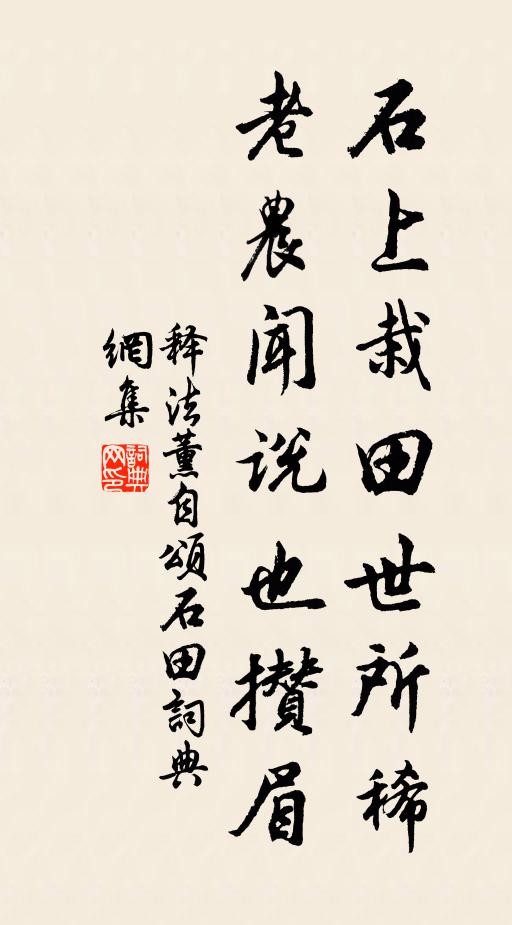 石上栽田世所稀
老農聞説也攅眉
释法薰自頌石田詞典
網集
詞典网印